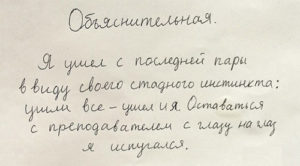 Объяснительная.
Я ушел с последней пары
в виду своего стадного инстинкта:
ушли все - ушел и я. Оставаться
с преподавателем с глазу на глаз
я испугался.